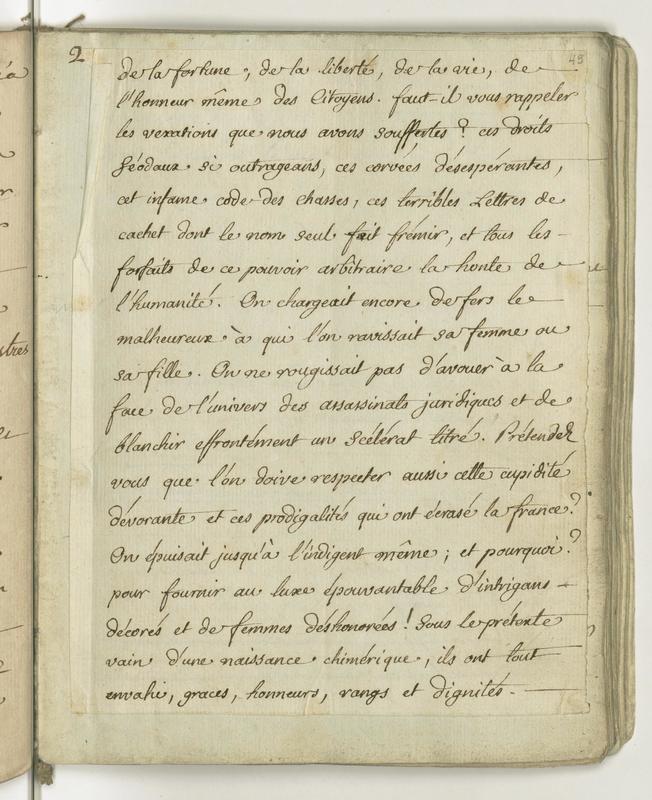 2
45
de la fortune, de la liberté, de la vie, de
l'honneur même des Citoyens. faut-il vous rappeler
les vexations que nous avons souffertes ? ces droits
féodaux si outrageans, ces corvées désespérantes,
cet infame code des chasses, ces terribles Lettres de
cachet dont le nom seul fait frémir, et tous les
forfaits de ce pouvoir arbitraire la honte de
l'humanité. On chargeait encore de fers le
malheureux à qui l'on ravissait sa femme ou
sa fille. On ne rougissait pas d'avouer à la
face de l'univers des assassinats juridiques et de
blanchir effrontément un scélérat titré. Prétendez
vous que l'on doive respecter aussi cette cupidité
dévorante et ces prodigalités qui ont écrasé la france ?
On épuisait jusqu'à l'indigent même ; et pourquoi ?
pour fournir au luxe épouvantable d'intrigans
décorés et de femmes déshonorées ! Sous le prétexte
vain d'une naissance chimérique, ils ont tout
envahi, graces, honneurs, rangs et dignités.